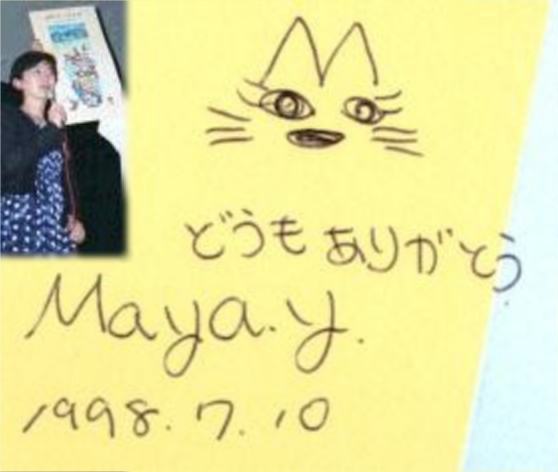 どうも ありがとう
Maya.y.
1998.7.10